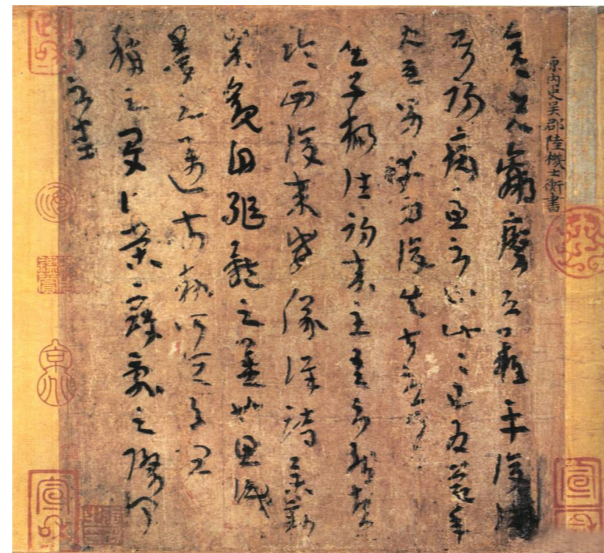 晉內史吳郡陸機士衡書
彥先羸瘵恐難平復
初病慮不止此此已為慶承
使唯男幸為復失前憂耳
吳子楊往初來主吾不能盡
臨西復來威儀詳跱舉動
成觀自軀體之美也思識
量之邁前執所恒有宜
稱之夏伯榮寇亂之際聞
問不悉
宣和
政和